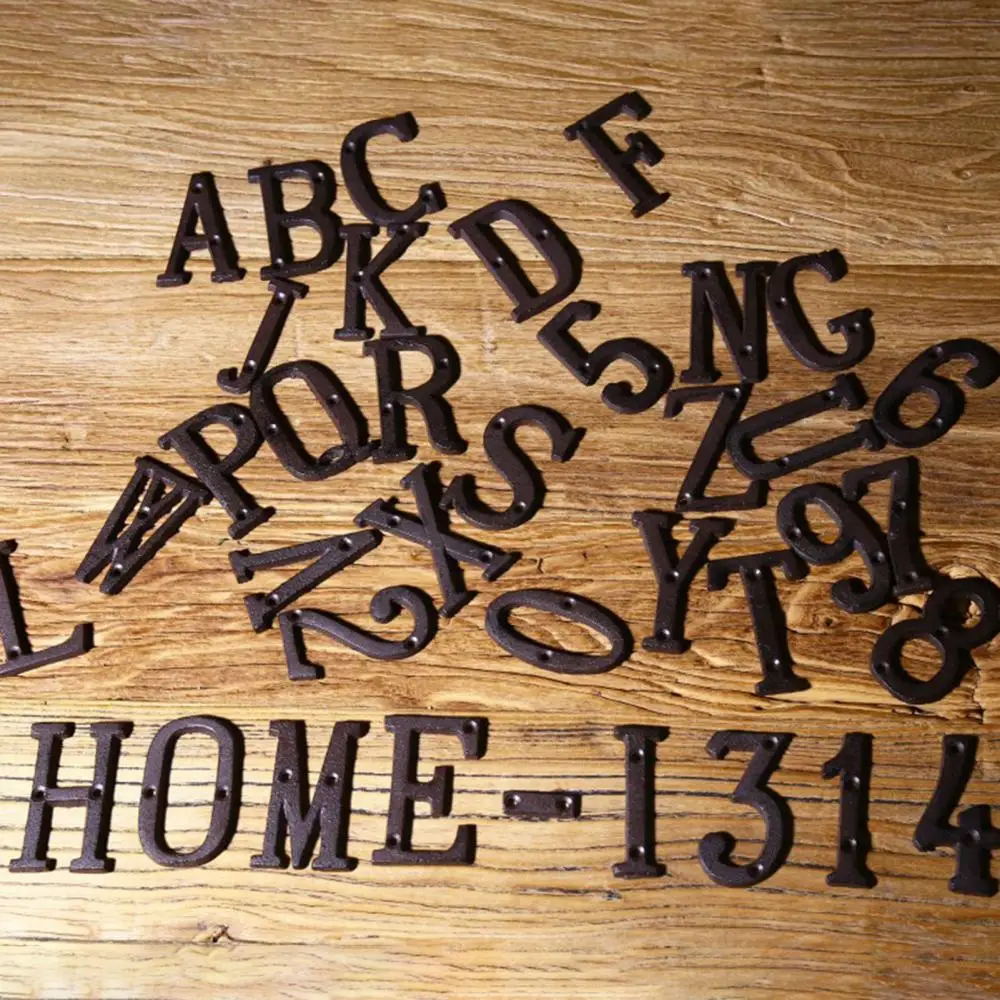 F
C
A B
K D
N G
J 5
R 6
Q Z U
P S
W X 9 7
V Y T
L 2 0 8
HOME-1314